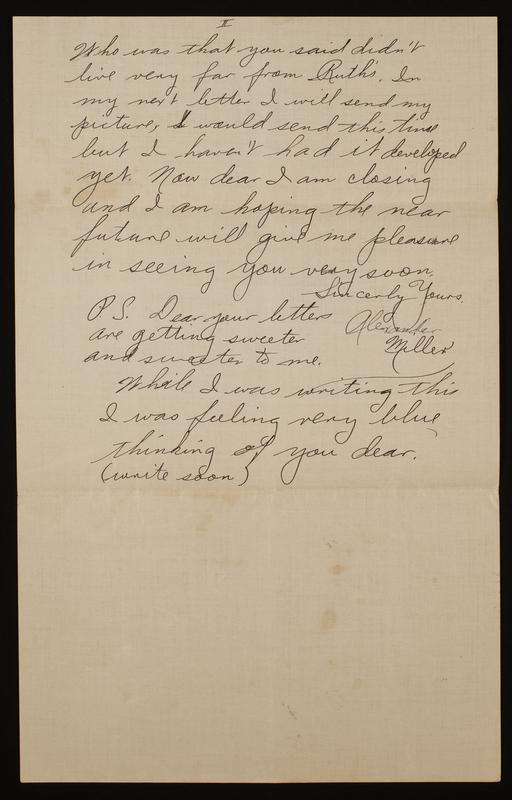 II
Who was that you said didn't
live very far from Ruth's. In
my next letter I will send my
picture, I would send this time
but I haven't had it developed
yet. Now dear I am closing
and I am hoping the near
future will give me pleasure
in seeing you very soon.
Sincerly Yours.
Alexander
Miller
P.S. Dear your letters
are getting sweeter
and sweeter to me.
While I was writing this
I was feeling very blue
thinking of you dear.
(write soon)